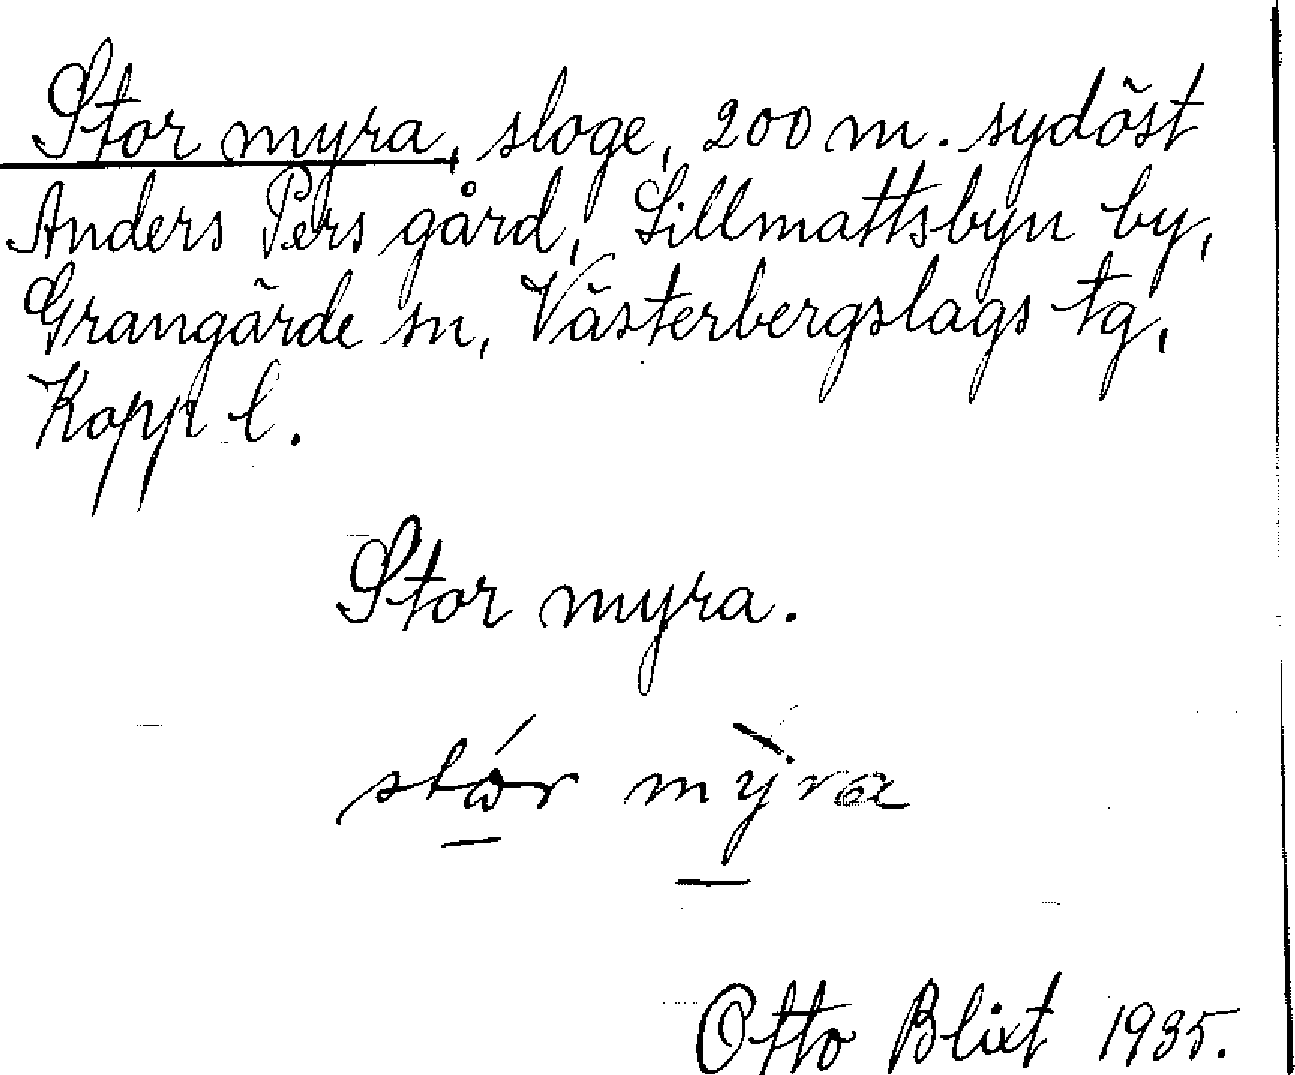 Stor myra, sloge, 200 m. sydöst
Anders Pers gård, Lillmattsbyn by,
Grangärde sn, Västerbergslags tg,
Kopp l.
Stor myra.
Otto Blixt 1935.